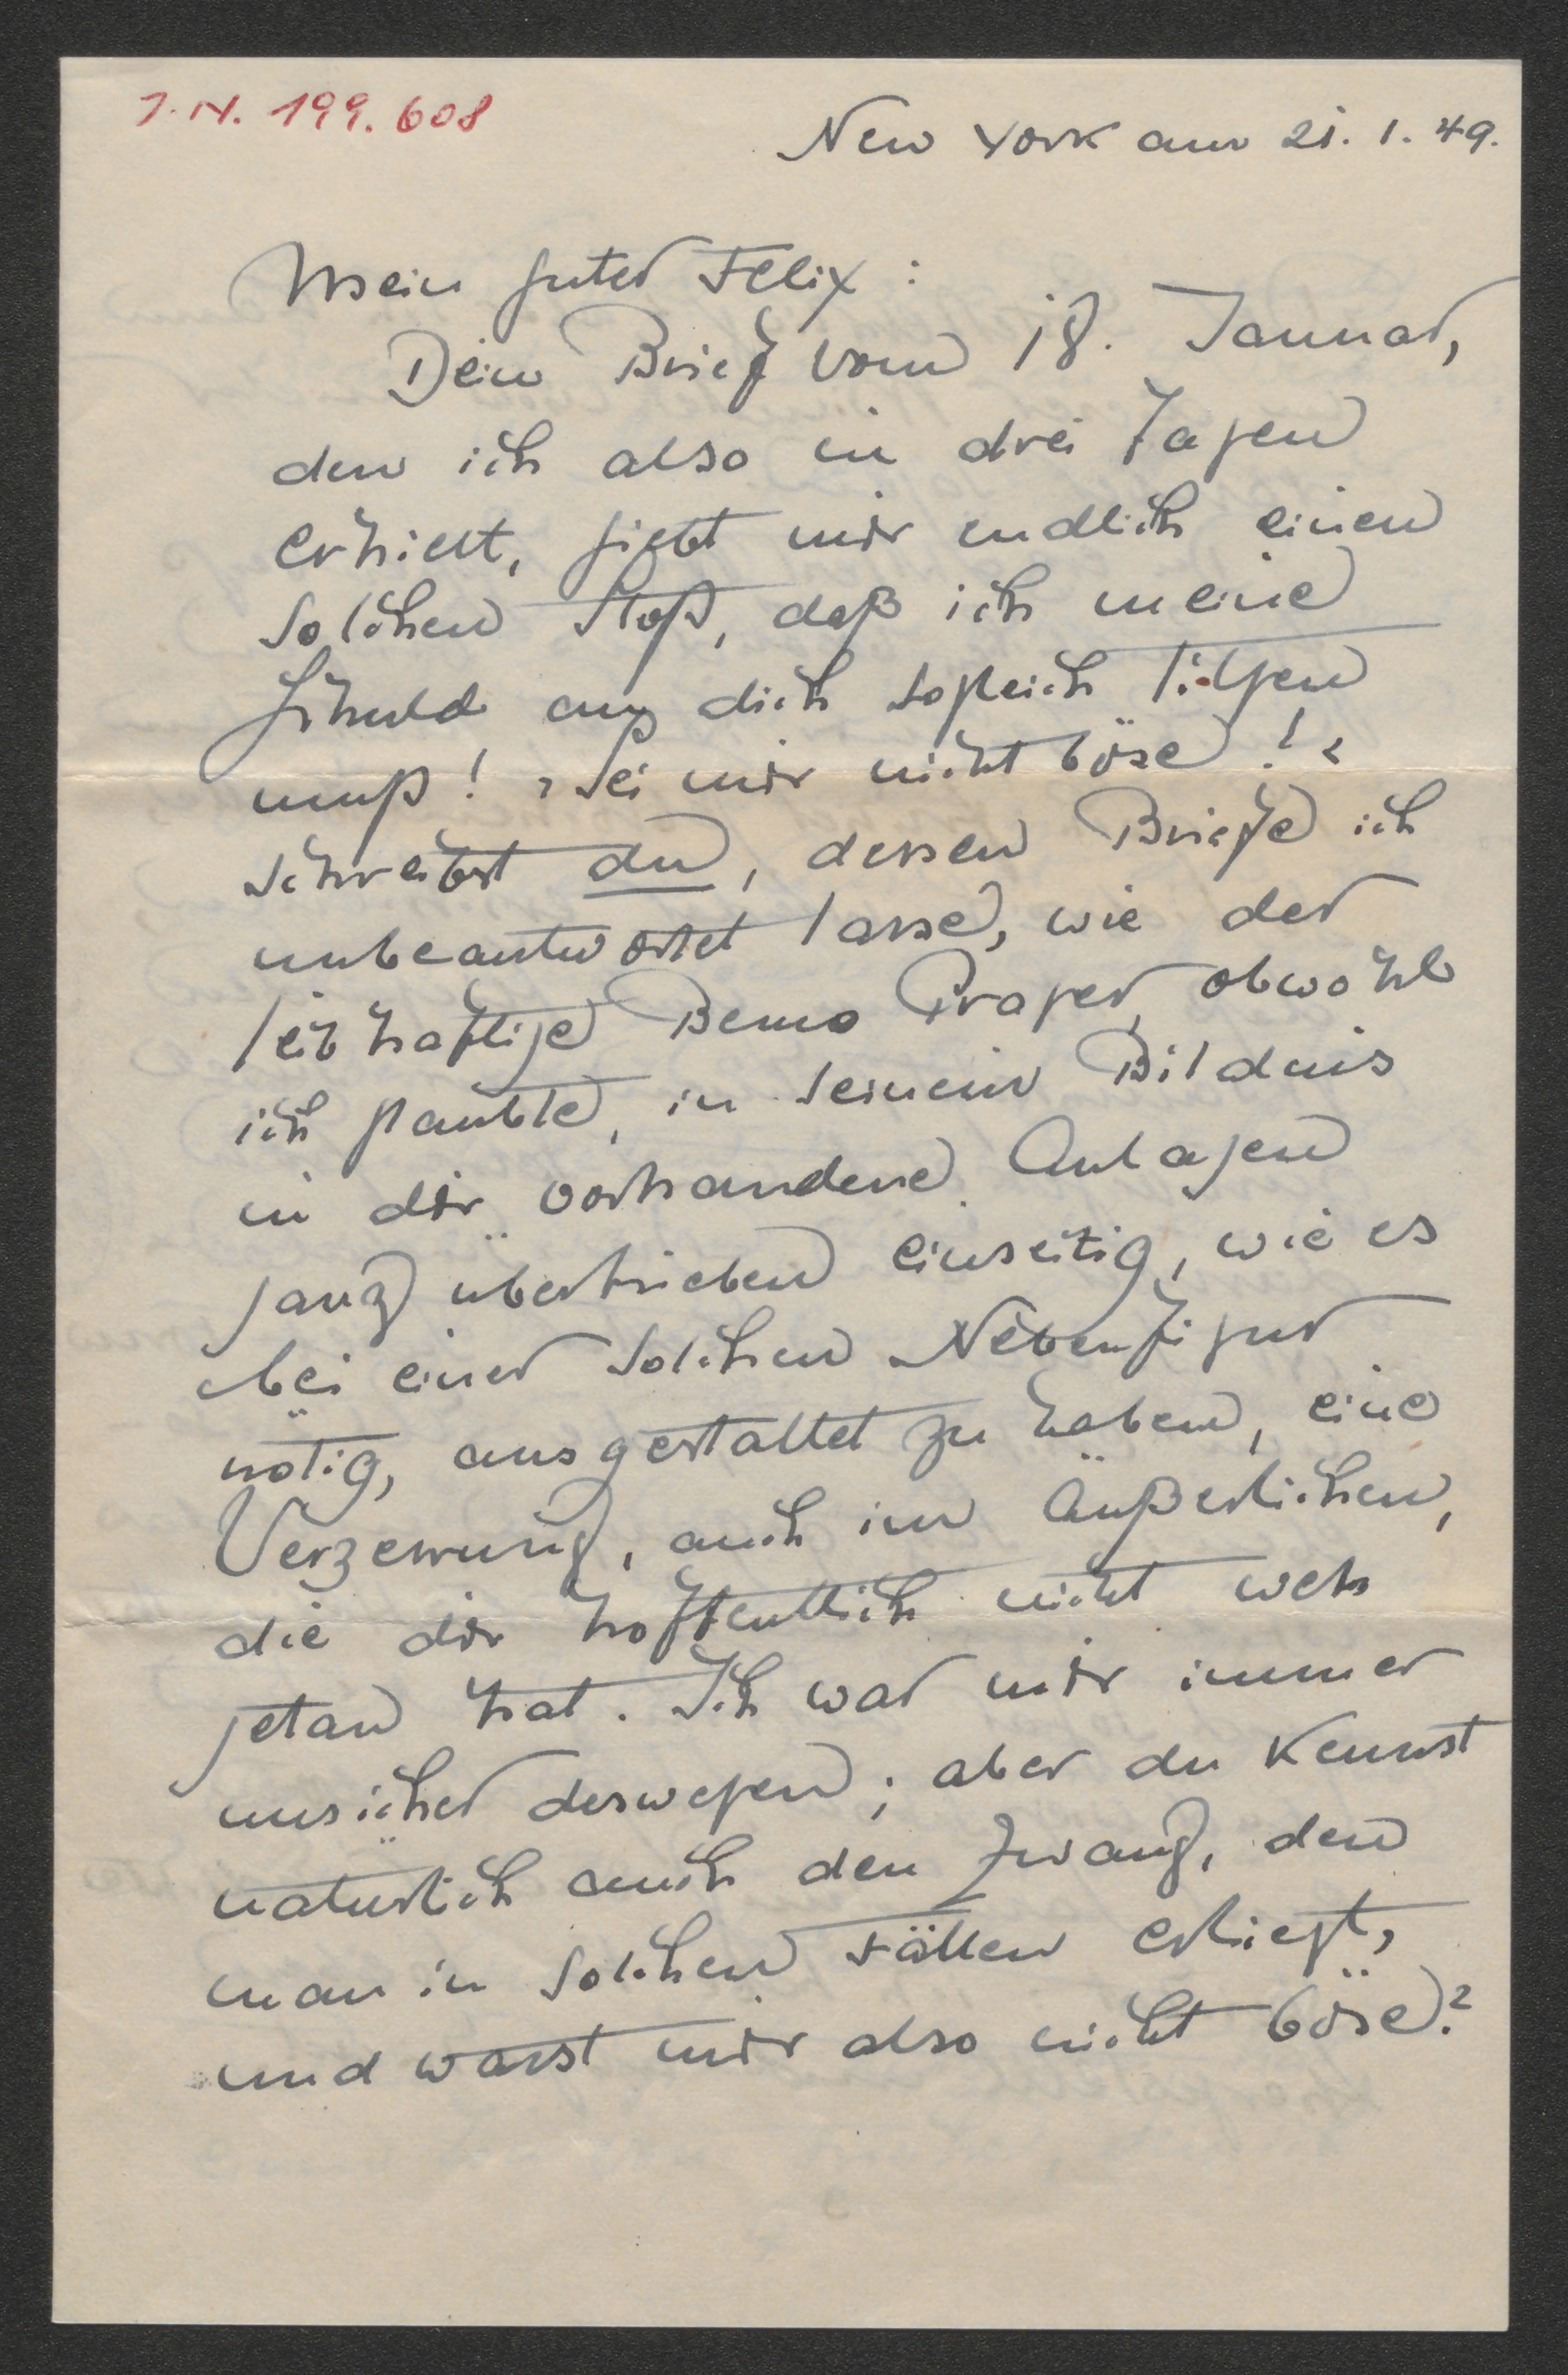 J.N. 199.608
New York am 21. 1. 49.
Mein guter Felix:
Dein Brief vom 18. Januar,
den ich also in drei Tagen
erhielt, giebt mir endlich einen
solchen Stoß, daß ich meine
Schuld an dich sogleich tilgen
muß! ›Sei mir nicht böse!‹
schreibst du, dessen Briefe ich
unbeantwortet lasse, wie der
leibhaftige Benno Prager, obwohl
ich glaubte, in seinem Bildnis
in dir vorhandene Anlagen
ganz übertrieben einseitig, wie es
bei einer solchen Nebenfigur
nötig, ausgestaltet zu haben, eine
Verzerrung, auch im Äußerlichen,
die dir hoffentlich nicht weh
getan hat. Ich war mir immer
unsicher deswegen; aber du kennst
natürlich auch den Zwang, dem
man in solchen Fällen erliegt,
und warst mir also nicht böse?